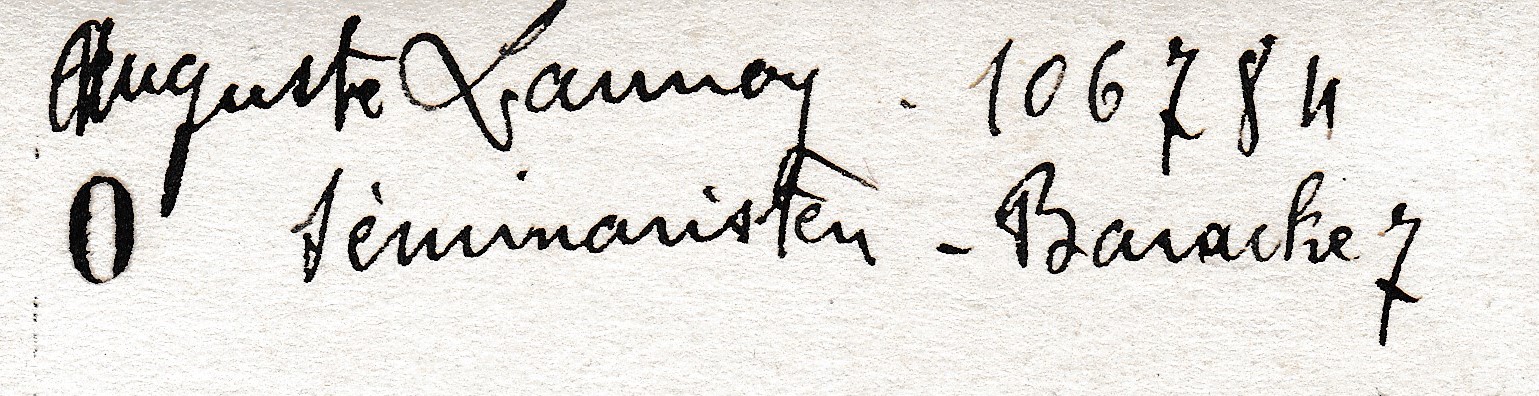 Auguste Launoy . 106784
0 Séminaristen - Baracke 7